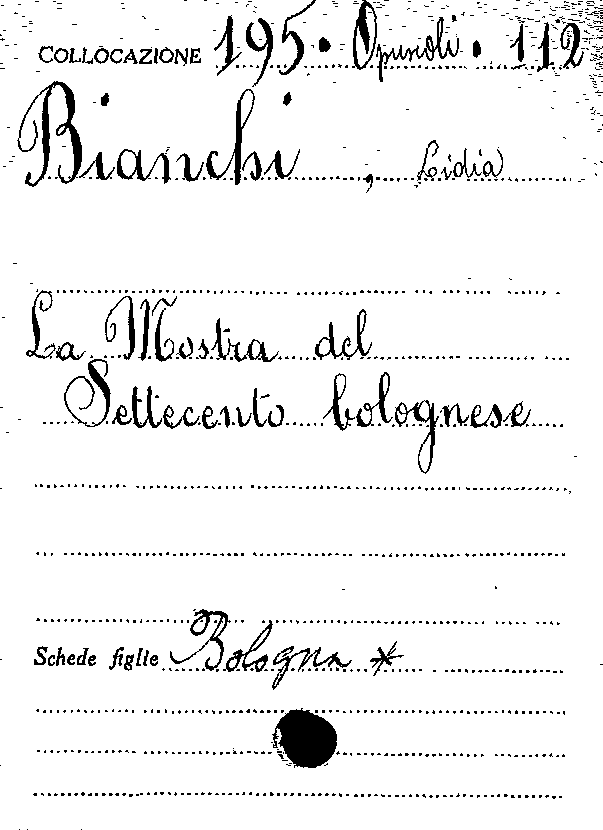 COLLOCAZIONE 195 • Opuscoli • 112
Bianchi, Lidia
La Mostra del
Settecento bolognese
Schede figlie Bologna *